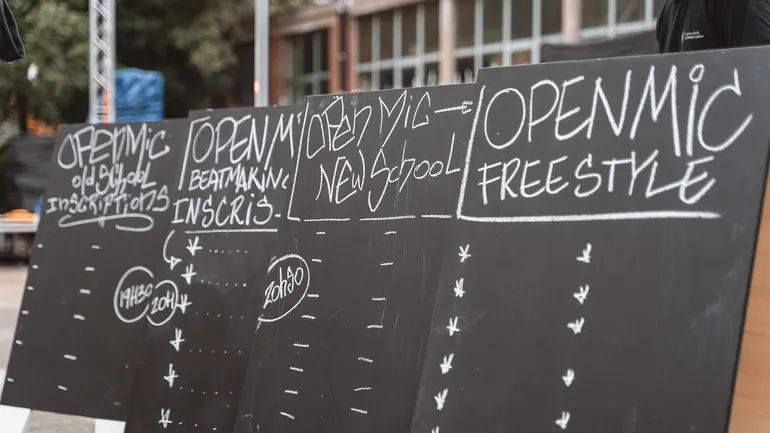 OPEN MiC
old School
INSCRIPTIONS
19H30
20H
OPEN M
BEATMAKING
INSCRIS.
OPEN MiC →
NEW School
20H30
OPEN MiC
FREESTYLE